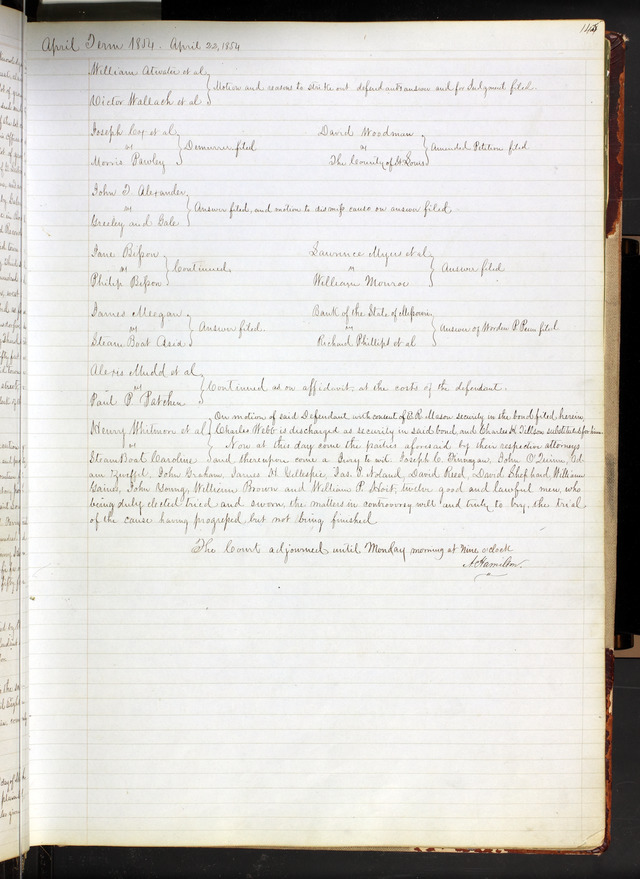 145
April Term 1854. April 22, 1854
William Atwater et al
Motion and reasons to strike out defendants answer and for Judgment filed.
Victor Wallach et al
Joseph Coy et al
vs Demurrer filed
Morris Pawley
David Woodman
vs Amended Petition filed
The County of St Louis
John T Alexander
vs Answer filed, and motion to dismiss cause on answer filed
Greeley and Gale
Jane Bisson
vs Continued.
Philip Bisson
Lawrence Myers et al
vs Answer filed
William Monroe
James Meegan
vs Answer filed.
Steam Boat Asia
Bank of the State of Missouri
vs Answer of Worden P. Penn filed
Richard Phillips et al
Alexis Mudd et al
vs Continued as on affidavit; at the costs of the defendant.
Paul P. Patchin
On motion of said Defendant with consent of C.R. Mason security in the bond filed herein
Henry Whitmore et al Charles Webb is discharged as security in said bond, and Charles H. Tillson substituted for him
vs Now at this day come the parties aforesaid by their respective attorneys
Steam Boat Caroline and thereupon come a Jury to wit. Joseph C. Finnagan, John O'Quinn,
John Graham, James H. Gillespie, Jas. T. Noland, David Reed, David Shephard, William
Gaines, John Young, William Brown and William P. twelve good and lawful men, who
being duly elected tried and sworn the matters in controversy well and truly to try, the trial
of the cause having progressed but not being finished
The Court adjourned until Monday morning at nine o'clock
A Hamilton.